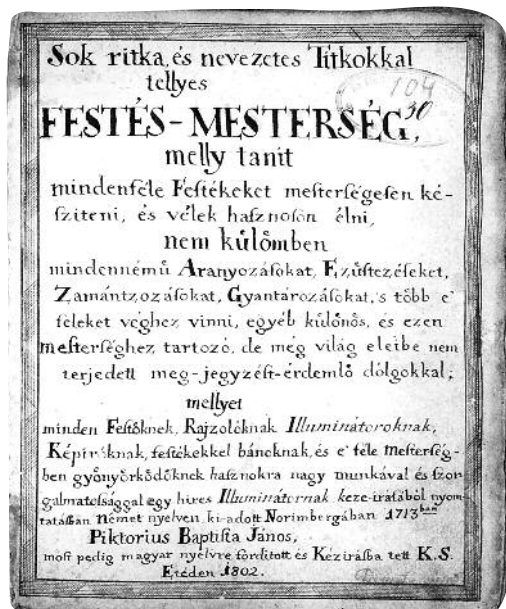 Sok ritka, és nevezetes Titkokkal
tellyes
104
30
FESTÉS-MESTERSÉG,
melly tanit
mindenféle Festékeket mesterségesen ké-
sziteni, és vélek hasznoson élni,
nem külömben
mindennémű Aranyozásokat, Ezüstezéseket,
Zamántzozásokat, Gyantározásokat, 's több e'
féleket véghez vinni, egyéb különös, és ezen
mesterséghez tartozó, de még világ eleibe nem
terjedett meg-jegyzést-érdemlő dolgokkal;
mellyet
minden Festőknek, Rajzolóknak Illuminátoroknak,
Képiróknak, festékekkel bánoknak, és e' féle mesterség-
ben gyönyörködőknek hasznokra nagy munkával és szor
galmatossággal egy hires Illuminátornak keze-irásából nyom-
tatásban Német nyelven ki-adott Norimbergában 1713ban
Piktorius Baptista János,
most pedig magyar nyelvre forditott és Kézirásba tett K.S.
Etéden 1802.